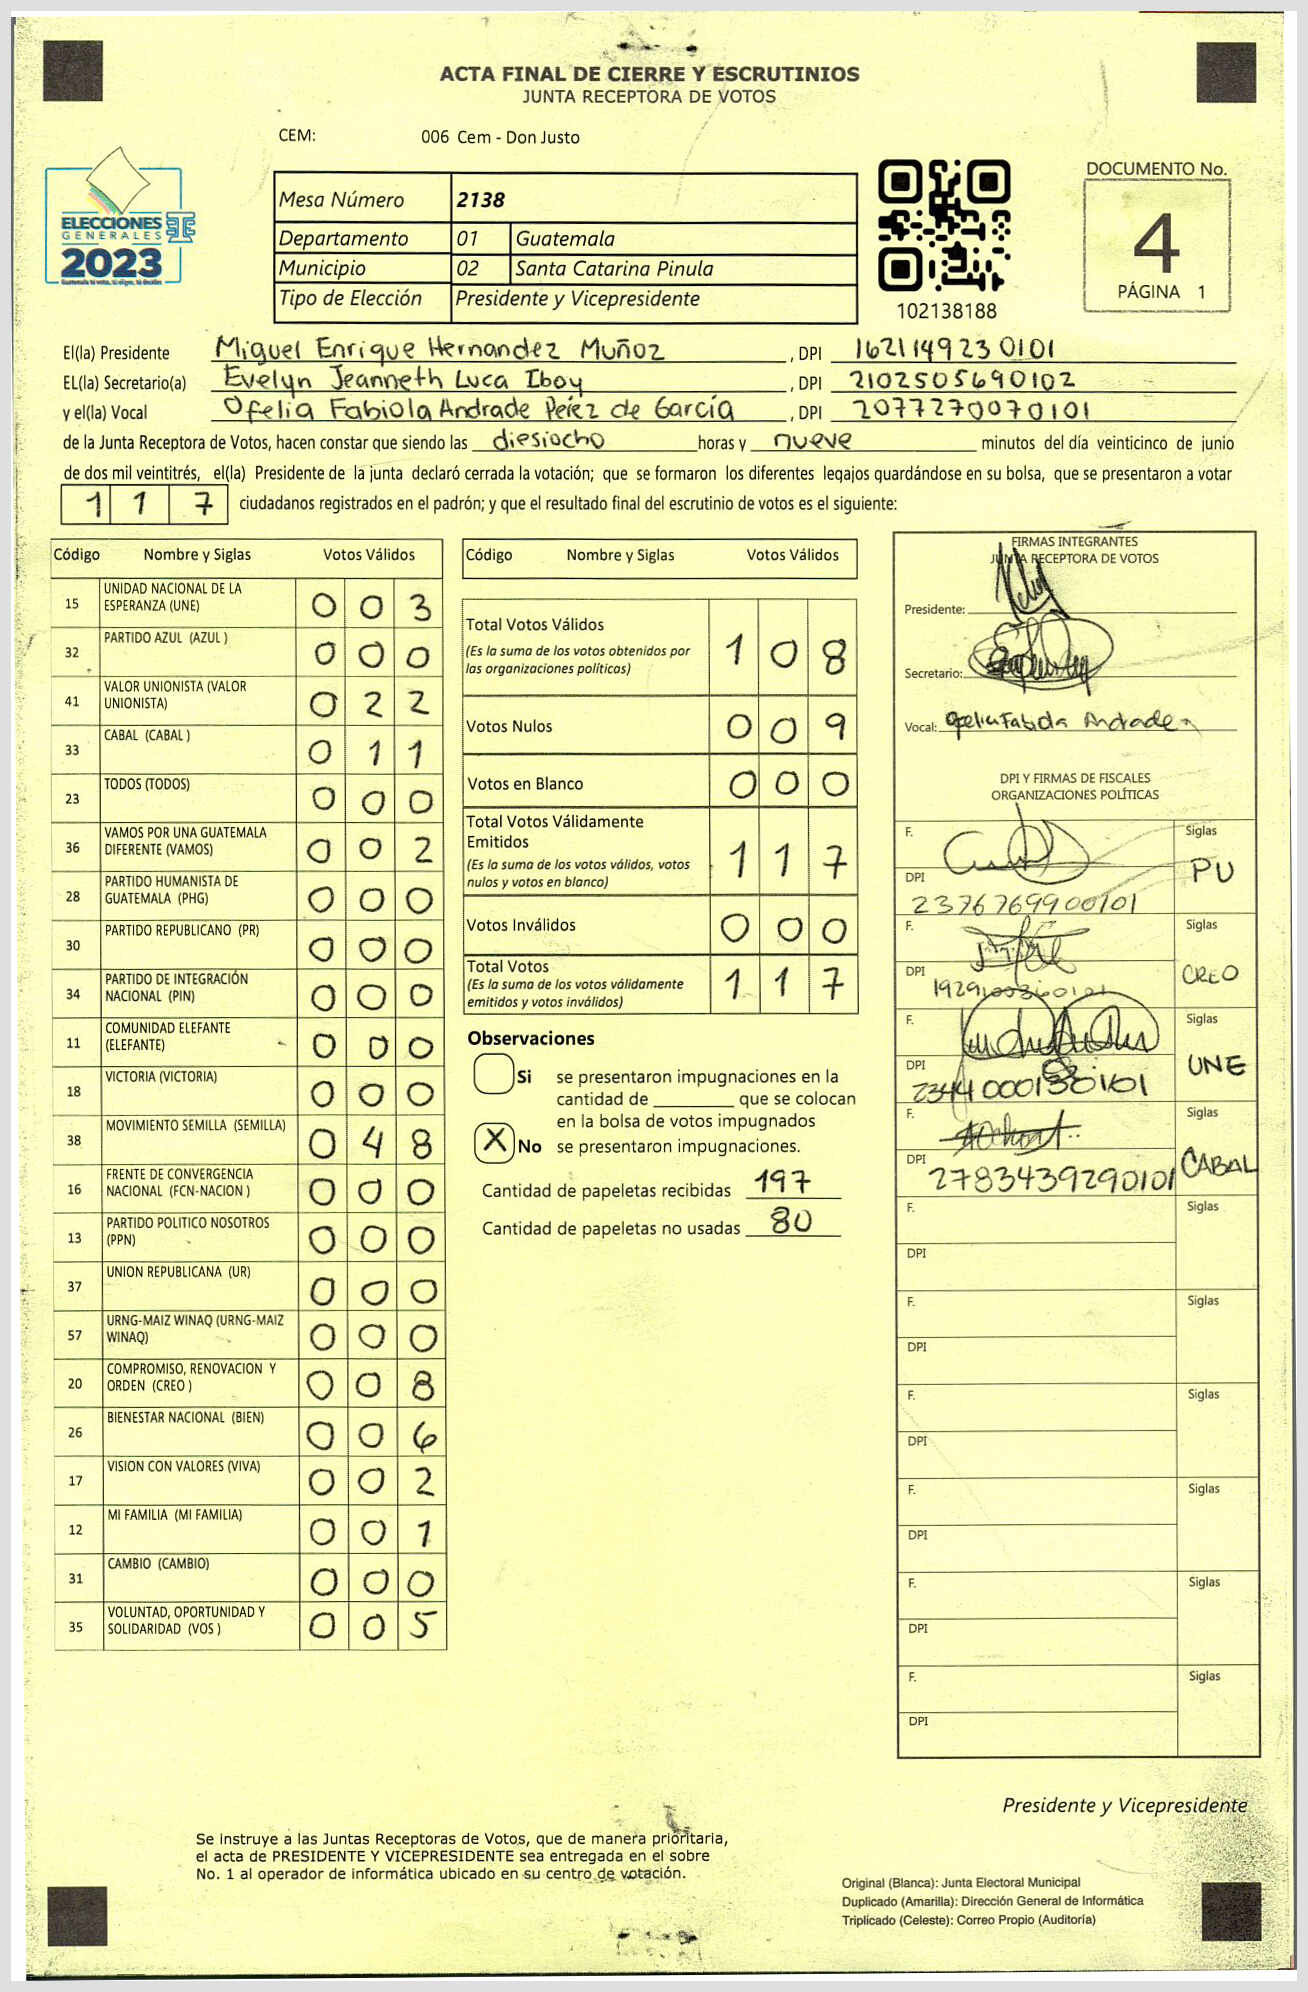 ACTA FINAL DE CIERRE Y ESCRUTINIOS
JUNTA RECEPTORA DE VOTOS
CEM: 006 Cem - Don Justo
ELECCIONES
GENERALES
2023
Mesa Número 2138
Departamento 01 Guatemala
Municipio 02 Santa Catarina Pinula
Tipo de Elección Presidente y Vicepresidente
102138188
DOCUMENTO No.
4
PÁGINA 1
El(la) Presidente Miguel Enrique Hernandez Muñoz , DPI 1621149230101
EL(la) Secretario(a) Evelyn Jeanneth Luca Iboy , DPI 2102505690102
y el(la) Vocal Ofelia Fabiola Andrade Pérez de García , DPI 2077270070101
de la Junta Receptora de Votos, hacen constar que siendo las diesiocho horas y nueve minutos del día veinticinco de junio
de dos mil veintitrés, el(la) Presidente de la junta declaró cerrada la votación; que se formaron los diferentes legajos guardándose en su bolsa, que se presentaron a votar
117 ciudadanos registrados en el padrón; y que el resultado final del escrutinio de votos es el siguiente:
Código Nombre y Siglas Votos Válidos
15 UNIDAD NACIONAL DE LA
ESPERANZA (UNE) 0 0 3
32 PARTIDO AZUL (AZUL ) 0 0 0
41 VALOR UNIONISTA (VALOR
UNIONISTA) 0 2 2
33 CABAL (CABAL ) 0 1 1
23 TODOS (TODOS) 0 0 0
36 VAMOS POR UNA GUATEMALA
DIFERENTE (VAMOS) 0 0 2
28 PARTIDO HUMANISTA DE
GUATEMALA (PHG) 0 0 0
30 PARTIDO REPUBLICANO (PR) 0 0 0
34 PARTIDO DE INTEGRACIÓN
NACIONAL (PIN) 0 0 0
11 COMUNIDAD ELEFANTE
(ELEFANTE) 0 0 0
18 VICTORIA (VICTORIA) 0 0 0
38 MOVIMIENTO SEMILLA (SEMILLA) 0 4 8
16 FRENTE DE CONVERGENCIA
NACIONAL (FCN-NACION ) 0 0 0
13 PARTIDO POLITICO NOSOTROS
(PPN) 0 0 0
37 UNION REPUBLICANA (UR) 0 0 0
57 URNG-MAIZ WINAQ (URNG-MAIZ
WINAQ) 0 0 0
20 COMPROMISO, RENOVACION Y
ORDEN (CREO ) 0 0 8
26 BIENESTAR NACIONAL (BIEN) 0 0 6
17 VISION CON VALORES (VIVA) 0 0 2
12 MI FAMILIA (MI FAMILIA) 0 0 1
31 CAMBIO (CAMBIO) 0 0 0
35 VOLUNTAD, OPORTUNIDAD Y
SOLIDARIDAD (VOS ) 0 0 5
Código Nombre y Siglas Votos Válidos
Total Votos Válidos 1 0 8
(Es la suma de los votos obtenidos por
las organizaciones políticas)
Votos Nulos 0 0 9
Votos en Blanco 0 0 0
Total Votos Válidamente
Emitidos 1 1 7
(Es la suma de los votos válidos, votos
nulos y votos en blanco)
Votos Inválidos 0 0 0
Total Votos 1 1 7
(Es la suma de los votos válidamente
emitidos y votos inválidos)
Observaciones
Si se presentaron impugnaciones en la
cantidad de ________ que se colocan
en la bolsa de votos impugnados
X No se presentaron impugnaciones.
Cantidad de papeletas recibidas 197
Cantidad de papeletas no usadas 80
FIRMAS INTEGRANTES
JUNTA RECEPTORA DE VOTOS
Presidente:
Secretario:
Vocal: Ofelia Fabiola Andrade
DPI Y FIRMAS DE FISCALES
ORGANIZACIONES POLÍTICAS
F. Siglas
PU
DPI
2376769900101
F. Siglas
CREO
DPI
1929100360101
F. Siglas
UNE
DPI
F. Siglas
CABAL
DPI
2783439290101
F. Siglas
DPI
F. Siglas
DPI
F. Siglas
DPI
F. Siglas
DPI
F. Siglas
DPI
F. Siglas
DPI
Presidente y Vicepresidente
Se instruye a las Juntas Receptoras de Votos, que de manera prioritaria,
el acta de PRESIDENTE Y VICEPRESIDENTE sea entregada en el sobre
No. 1 al operador de informática ubicado en su centro de votación.
Original (Blanca): Junta Electoral Municipal
Duplicado (Amarilla): Dirección General de Informática
Triplicado (Celeste): Correo Propio (Auditoría)